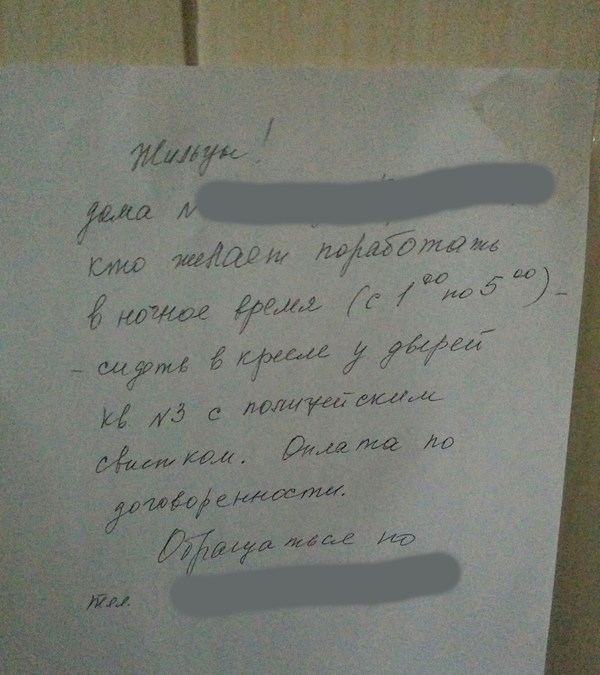 Жильцы!
дома №
кто желает поработать
в ночное время (с 1⁰⁰ по 5⁰⁰) –
– сидеть в кресле у дверей
кв №3 с полицейским
свистком. Оплата по
договоренности.
Обращаться по
тел.